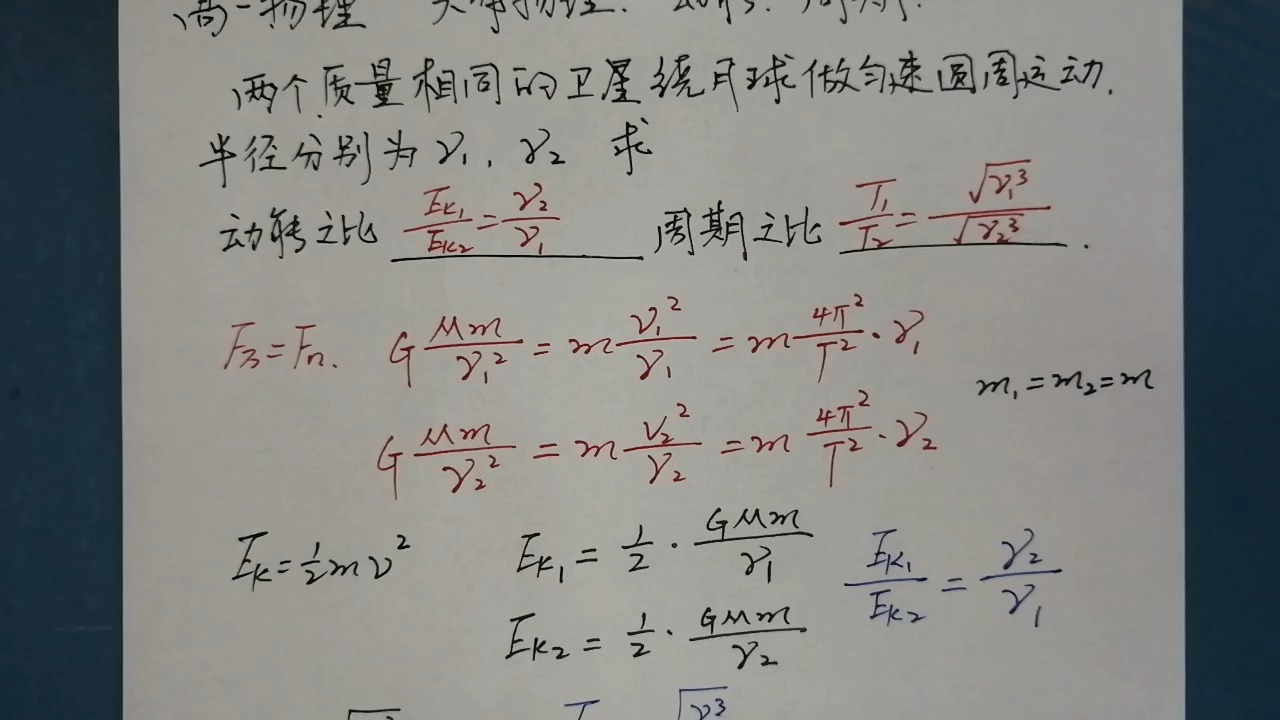 高一物理 天体物理. 动能. 周期.
两个质量相同的卫星绕月球做匀速圆周运动.
半径分别为 r₁, r₂ 求
动能之比 Eₖ₁/Eₖ₂ = r₂/r₁ 周期之比 T₁/T₂ = √r₁³/√r₂³ .
F万=Fn. G Mm/r₁² = m v₁²/r₁ = m 4π²/T² · r₁
m₁=m₂=m
G Mm/r₂² = m v₂²/r₂ = m 4π²/T² · r₂
Eₖ=½mv² Eₖ₁ = ½ · GMm/r₁ Eₖ₁/Eₖ₂ = r₂/r₁
Eₖ₂ = ½ · GMm/r₂